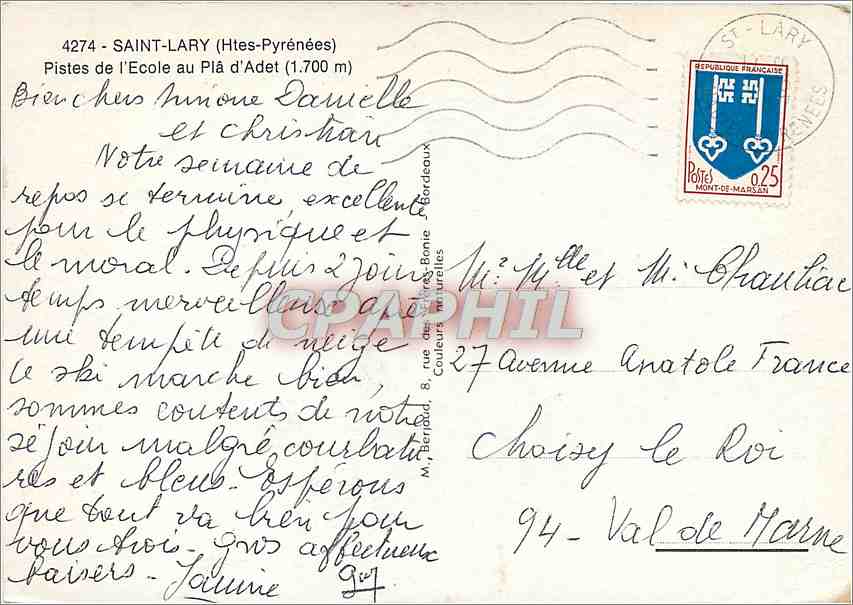 4274 - SAINT-LARY (Htes-Pyrénées)
Pistes de l'Ecole au Plâ d'Adet (1.700 m)
Bien chers Simone Danielle
et Christian
Notre semaine de
repos se termine excellente
pour le physique et
le moral. Depuis 2 jours
temps merveilleux après
une tempête de neige
le ski marche bien,
sommes contents de notre
séjour malgré courbatu-
res et bleus. Espérons
que tout va bien pour
vous trois. Gros affectueux
baisers - Janine Guy
M. Berjaud, 8, rue des Frères-Bonie - Bordeaux
Couleurs naturelles
CPAPHIL
ST-LARY
PYRENEES
REPUBLIQUE FRANÇAISE
POSTES 0,25
MONT-DE-MARSAN
Mr Mlle et M. Chauliac
27 Avenue Anatole France
Choisy le Roi
94 - Val de Marne